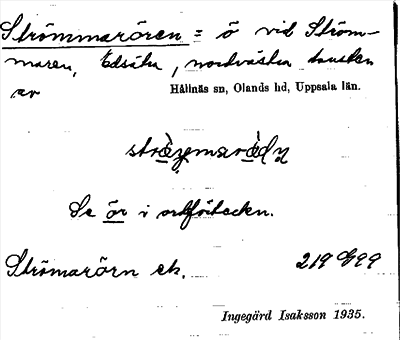 Strömmarören = ö vid Ström-
maren, Edsätra, nordvästra kusten
av
Hållnäs sn, Olands hd, Uppsala län.
Se ör i ortförteckn.
Strömarörn ek. 219 G99
Ingegärd Isaksson 1935.